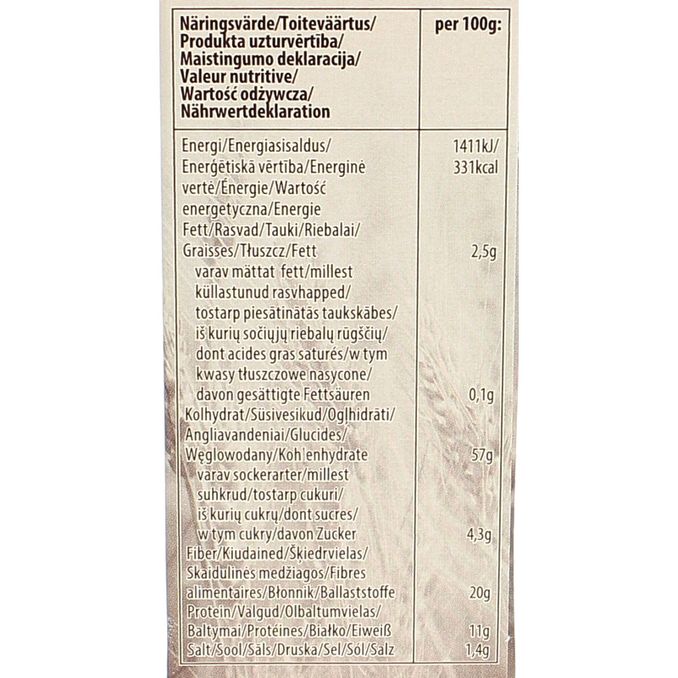 Näringsvärde/Toiteväärtus/ per 100g:
Produkta uzturvērtība/
Maistingumo deklaracija/
Valeur nutritive/
Wartość odżywcza/
Nährwertdeklaration
Energi/Energiasisaldus/ 1411kJ/
Enerģētiskā vērtība/Energinė 331kcal
vertė/Énergie/Wartość
energetyczna/Energie
Fett/Rasvad/Tauki/Riebalai/
Graisses/Tłuszcz/Fett 2,5g
varav mättat fett/millest
küllastunud rasvhapped/
tostarp piesātinātās taukskābes/
iš kurių sočiųjų riebalų rūgščių/
dont acides gras saturés/w tym
kwasy tłuszczowe nasycone/
davon gesättigte Fettsäuren 0,1g
Kolhydrat/Süsivesikud/Ogļhidrāti/
Angliavandeniai/Glucides/
Węglowodany/Kohlenhydrate 57g
varav sockerarter/millest
suhkrud/tostarp cukuri/
iš kurių cukrų/dont sucres/
w tym cukry/davon Zucker 4,3g
Fiber/Kiudained/Šķiedrvielas/
Skaidulinės medžiagos/Fibres
alimentaires/Błonnik/Ballaststoffe 20g
Protein/Valgud/Olbaltumvielas/
Baltymai/Protéines/Białko/Eiweiß 11g
Salt/Sool/Sāls/Druska/Sel/Sól/Salz 1,4g